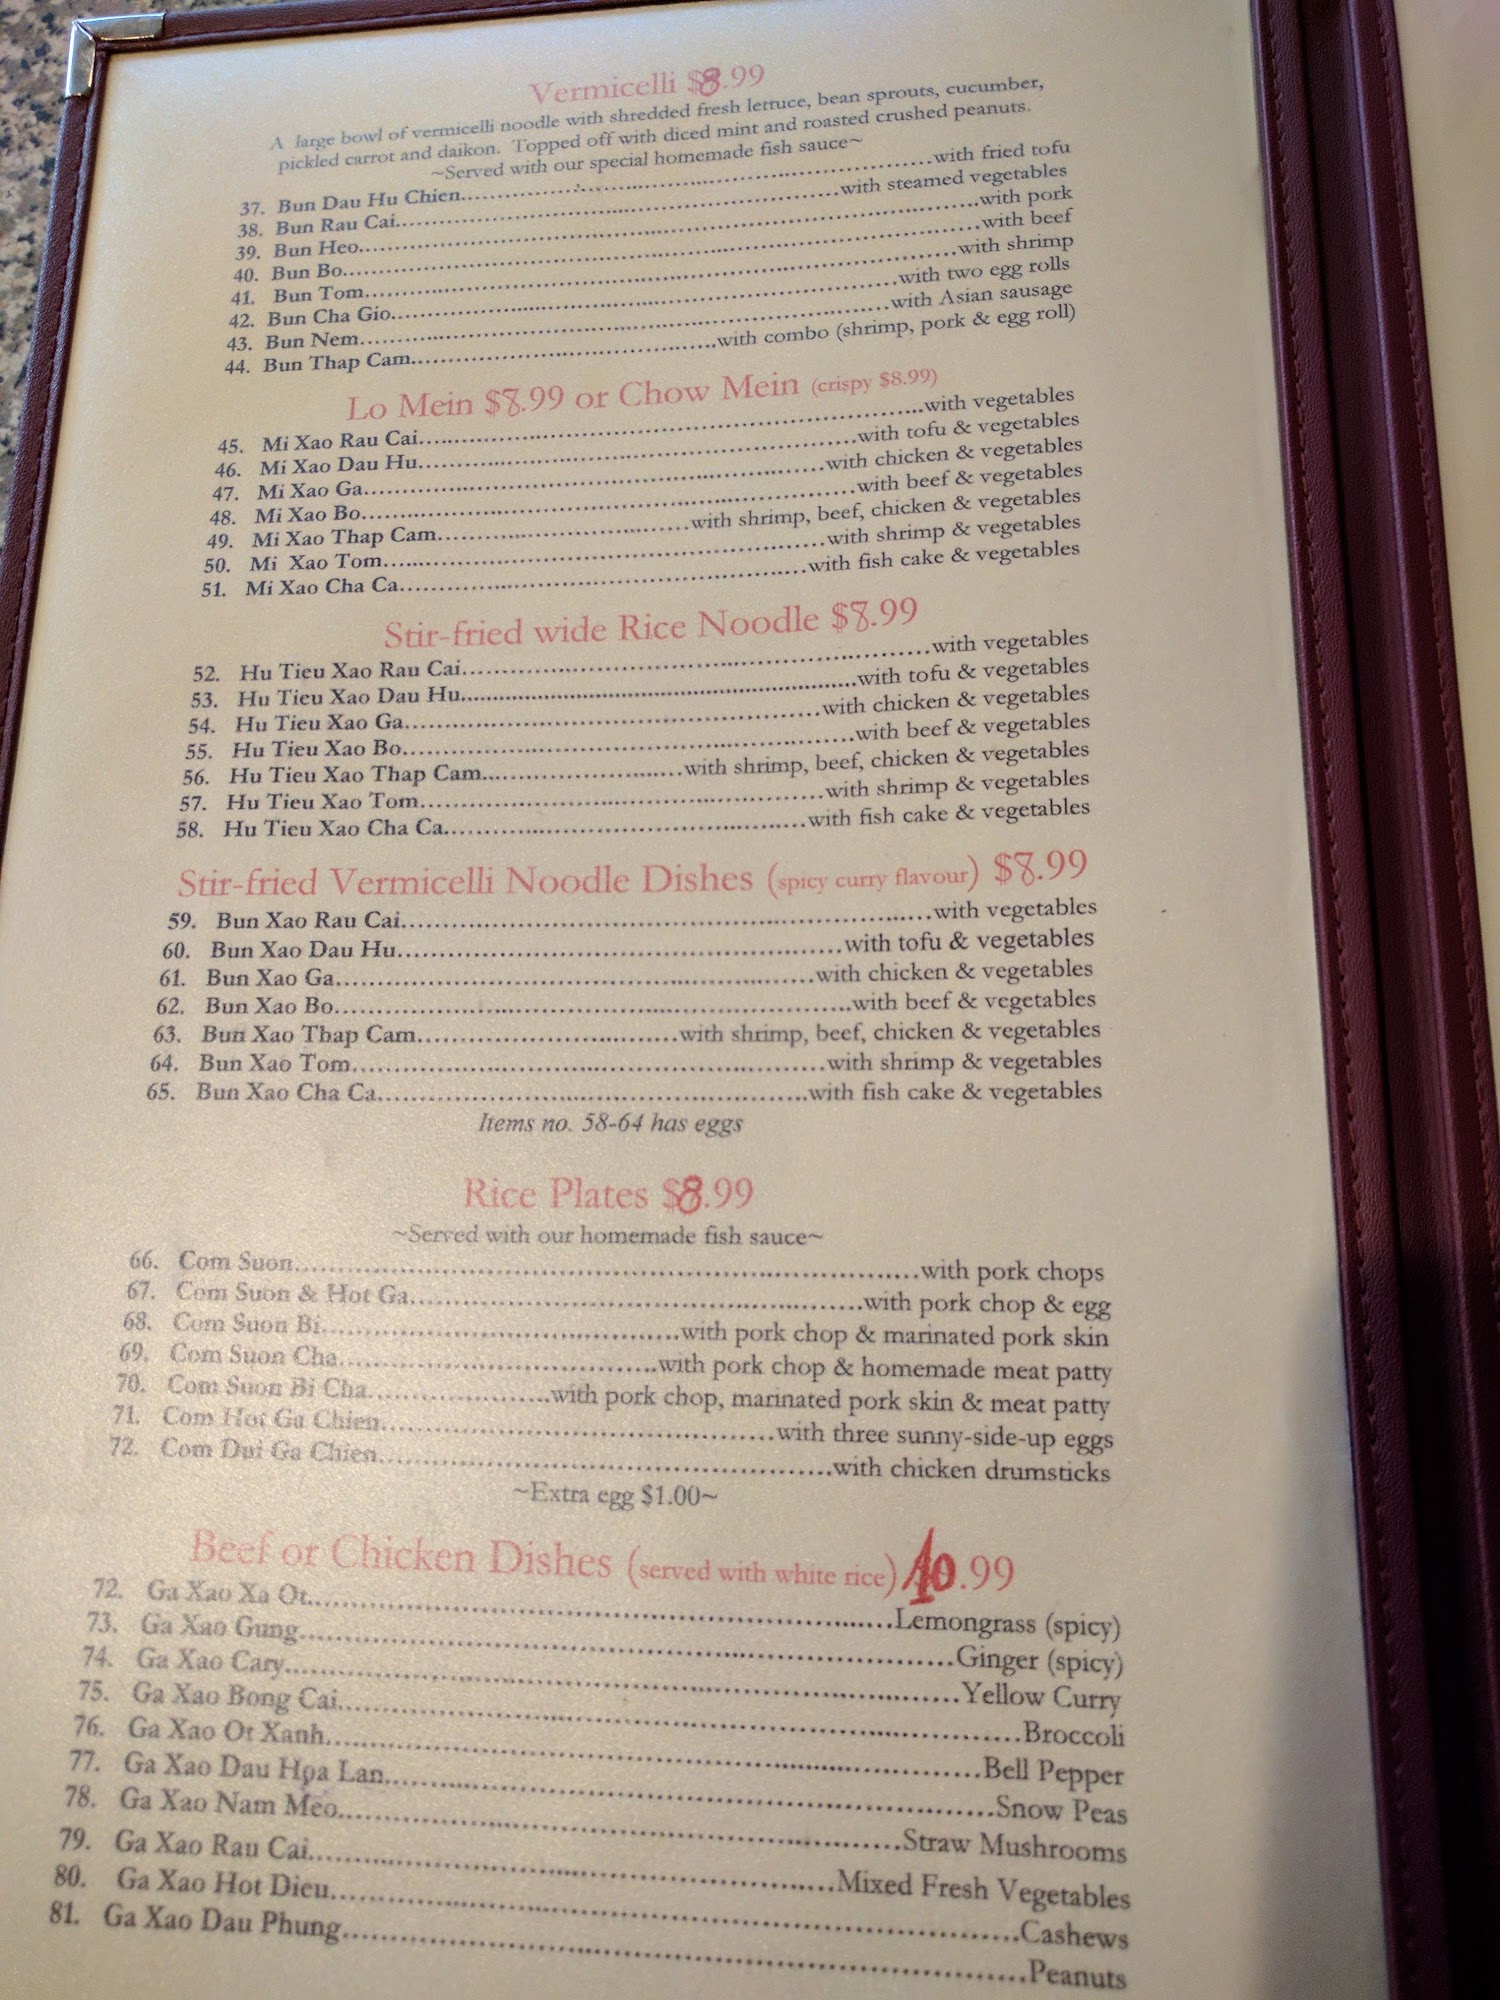 Vermicelli $8.99
A large bowl of vermicelli noodle with shredded fresh lettuce, bean sprouts, cucumber,
pickled carrot and daikon. Topped off with diced mint and roasted crushed peanuts.
~Served with our special homemade fish sauce~
37. Bun Dau Hu Chien..........with fried tofu
38. Bun Rau Cai..........with steamed vegetables
39. Bun Heo..........with pork
40. Bun Bo..........with beef
41. Bun Tom..........with shrimp
42. Bun Cha Gio..........with two egg rolls
43. Bun Nem..........with Asian sausage
44. Bun Thap Cam..........with combo (shrimp, pork & egg roll)
Lo Mein $8.99 or Chow Mein (crispy $8.99)
45. Mi Xao Rau Cai..........with vegetables
46. Mi Xao Dau Hu..........with tofu & vegetables
47. Mi Xao Ga..........with chicken & vegetables
48. Mi Xao Bo..........with beef & vegetables
49. Mi Xao Thap Cam..........with shrimp, beef, chicken & vegetables
50. Mi Xao Tom..........with shrimp & vegetables
51. Mi Xao Cha Ca..........with fish cake & vegetables
Stir-fried wide Rice Noodle $8.99
52. Hu Tieu Xao Rau Cai..........with vegetables
53. Hu Tieu Xao Dau Hu..........with tofu & vegetables
54. Hu Tieu Xao Ga..........with chicken & vegetables
55. Hu Tieu Xao Bo..........with beef & vegetables
56. Hu Tieu Xao Thap Cam..........with shrimp, beef, chicken & vegetables
57. Hu Tieu Xao Tom..........with shrimp & vegetables
58. Hu Tieu Xao Cha Ca..........with fish cake & vegetables
Stir-fried Vermicelli Noodle Dishes (spicy curry flavour) $8.99
59. Bun Xao Rau Cai..........with vegetables
60. Bun Xao Dau Hu..........with tofu & vegetables
61. Bun Xao Ga..........with chicken & vegetables
62. Bun Xao Bo..........with beef & vegetables
63. Bun Xao Thap Cam..........with shrimp, beef, chicken & vegetables
64. Bun Xao Tom..........with shrimp & vegetables
65. Bun Xao Cha Ca..........with fish cake & vegetables
Items no. 58-64 has eggs
Rice Plates $8.99
~Served with our homemade fish sauce~
66. Com Suon..........with pork chops
67. Com Suon & Hot Ga..........with pork chop & egg
68. Com Suon Bi..........with pork chop & marinated pork skin
69. Com Suon Cha..........with pork chop & homemade meat patty
70. Com Suon Bi Cha..........with pork chop, marinated pork skin & meat patty
71. Com Hot Ga Chien..........with three sunny-side-up eggs
72. Com Dui Ga Chien..........with chicken drumsticks
~Extra egg $1.00~
Beef or Chicken Dishes (served with white rice) 10.99
72. Ga Xao Xa Ot..........Lemongrass (spicy)
73. Ga Xao Gung..........Ginger (spicy)
74. Ga Xao Cary..........Yellow Curry
75. Ga Xao Bong Cai..........Broccoli
76. Ga Xao Ot Xanh..........Bell Pepper
77. Ga Xao Dau Hoa Lan..........Snow Peas
78. Ga Xao Nam Meo..........Straw Mushrooms
79. Ga Xao Rau Cai..........Mixed Fresh Vegetables
80. Ga Xao Hot Dieu..........Cashews
81. Ga Xao Dau Phung..........Peanuts